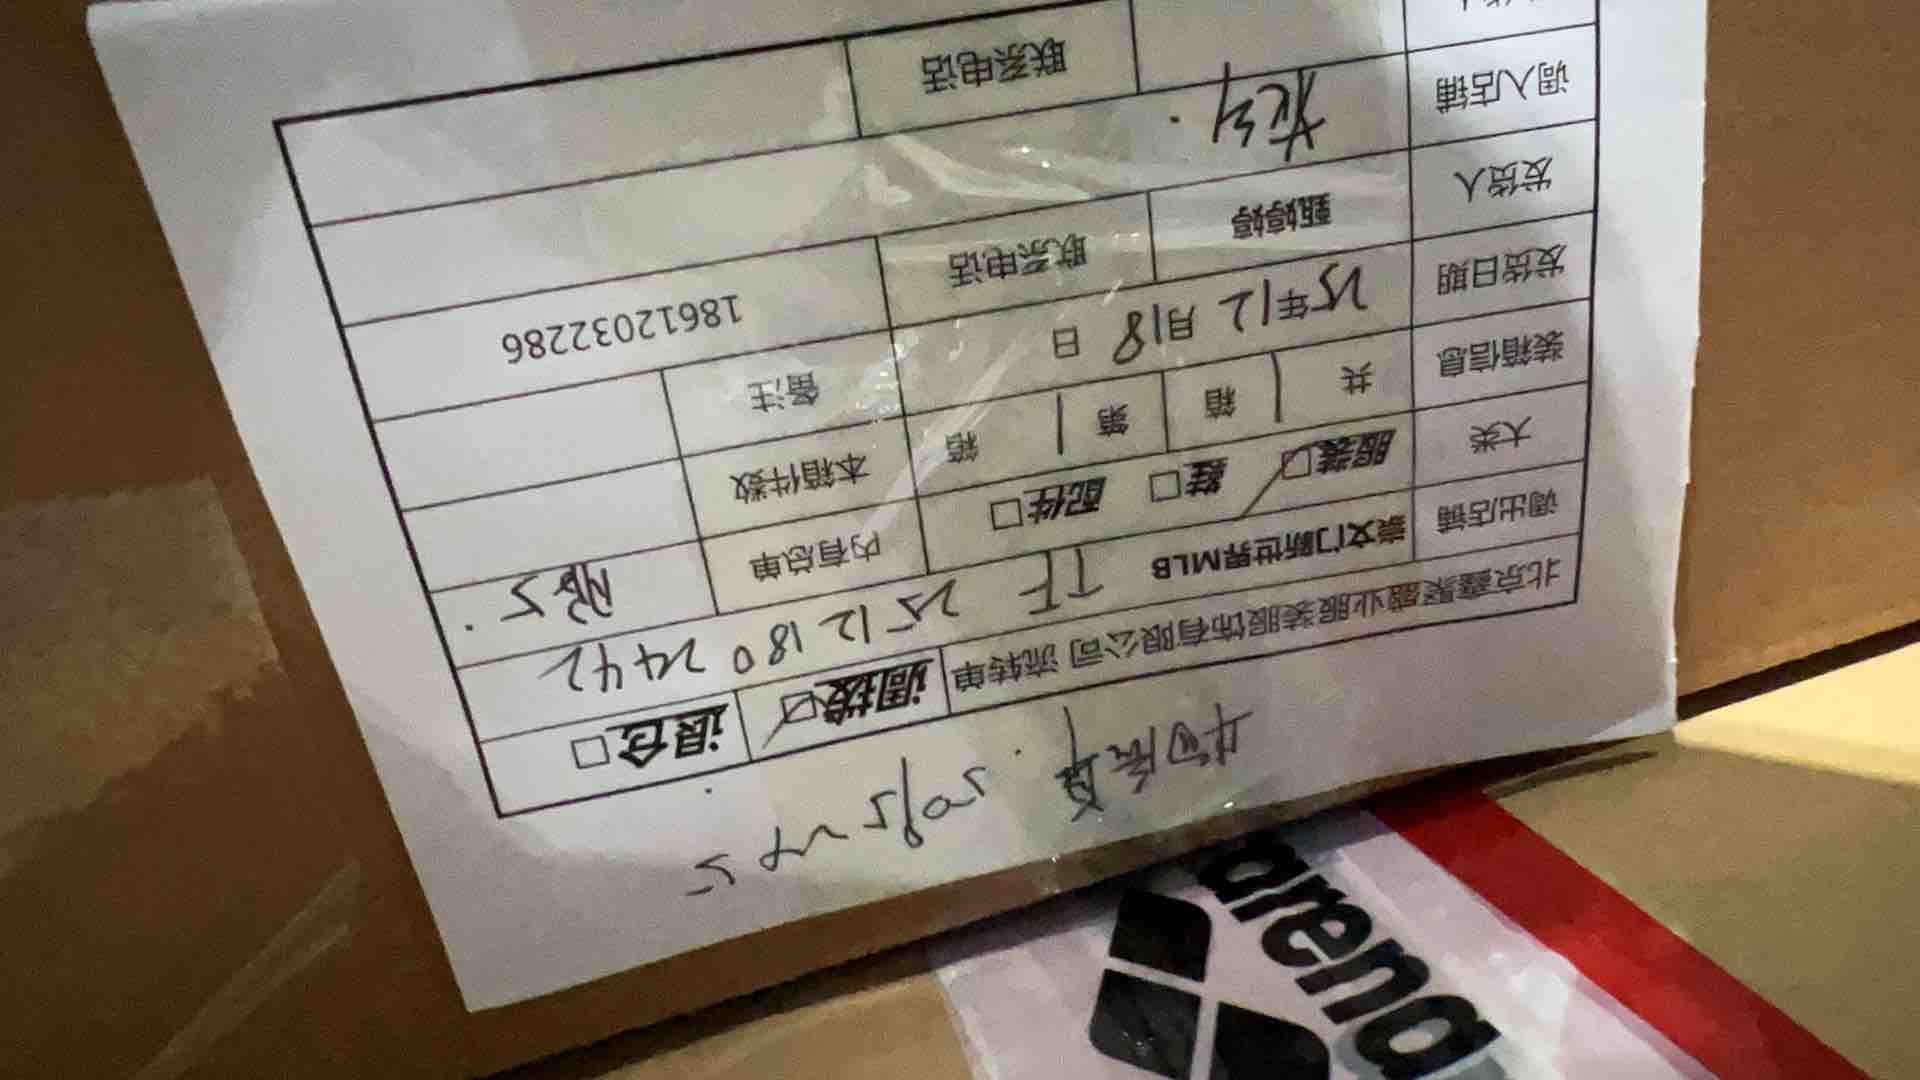 北京鑫聚盛业服装服饰有限公司 流转单 调拨☑ 退仓□
调出店铺 崇文门新世界MLB TF 2512180 2442
大类 服装☑ 鞋□ 配件□ 内有总单
装箱信息 共 1 箱 第 1 箱 本箱件数
发货日期 25年12月18日 备注
发货人 甄婷婷 联系电话 18612032286
调入店铺
联系电话
arena